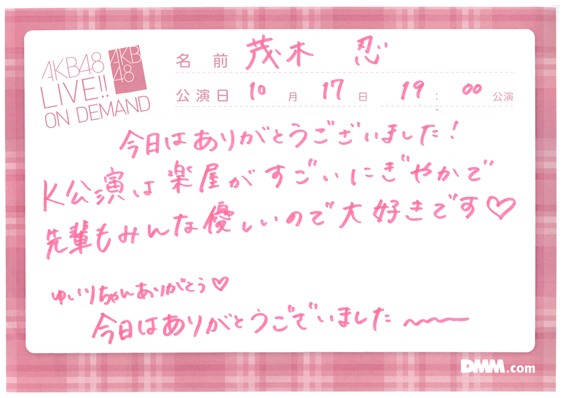 AKB48
LIVE!!
ON DEMAND
AKB
48
名前 茂木 忍
公演日 10月 17日 19:00公演
今日はありがとうございました!
K公演は楽屋がすごいにぎやかで
先輩もみんな優しいので大好きです♡
ゆいりちゃんありがとう♡
今日はありがとうごでいました〜〜〜
DMM.com